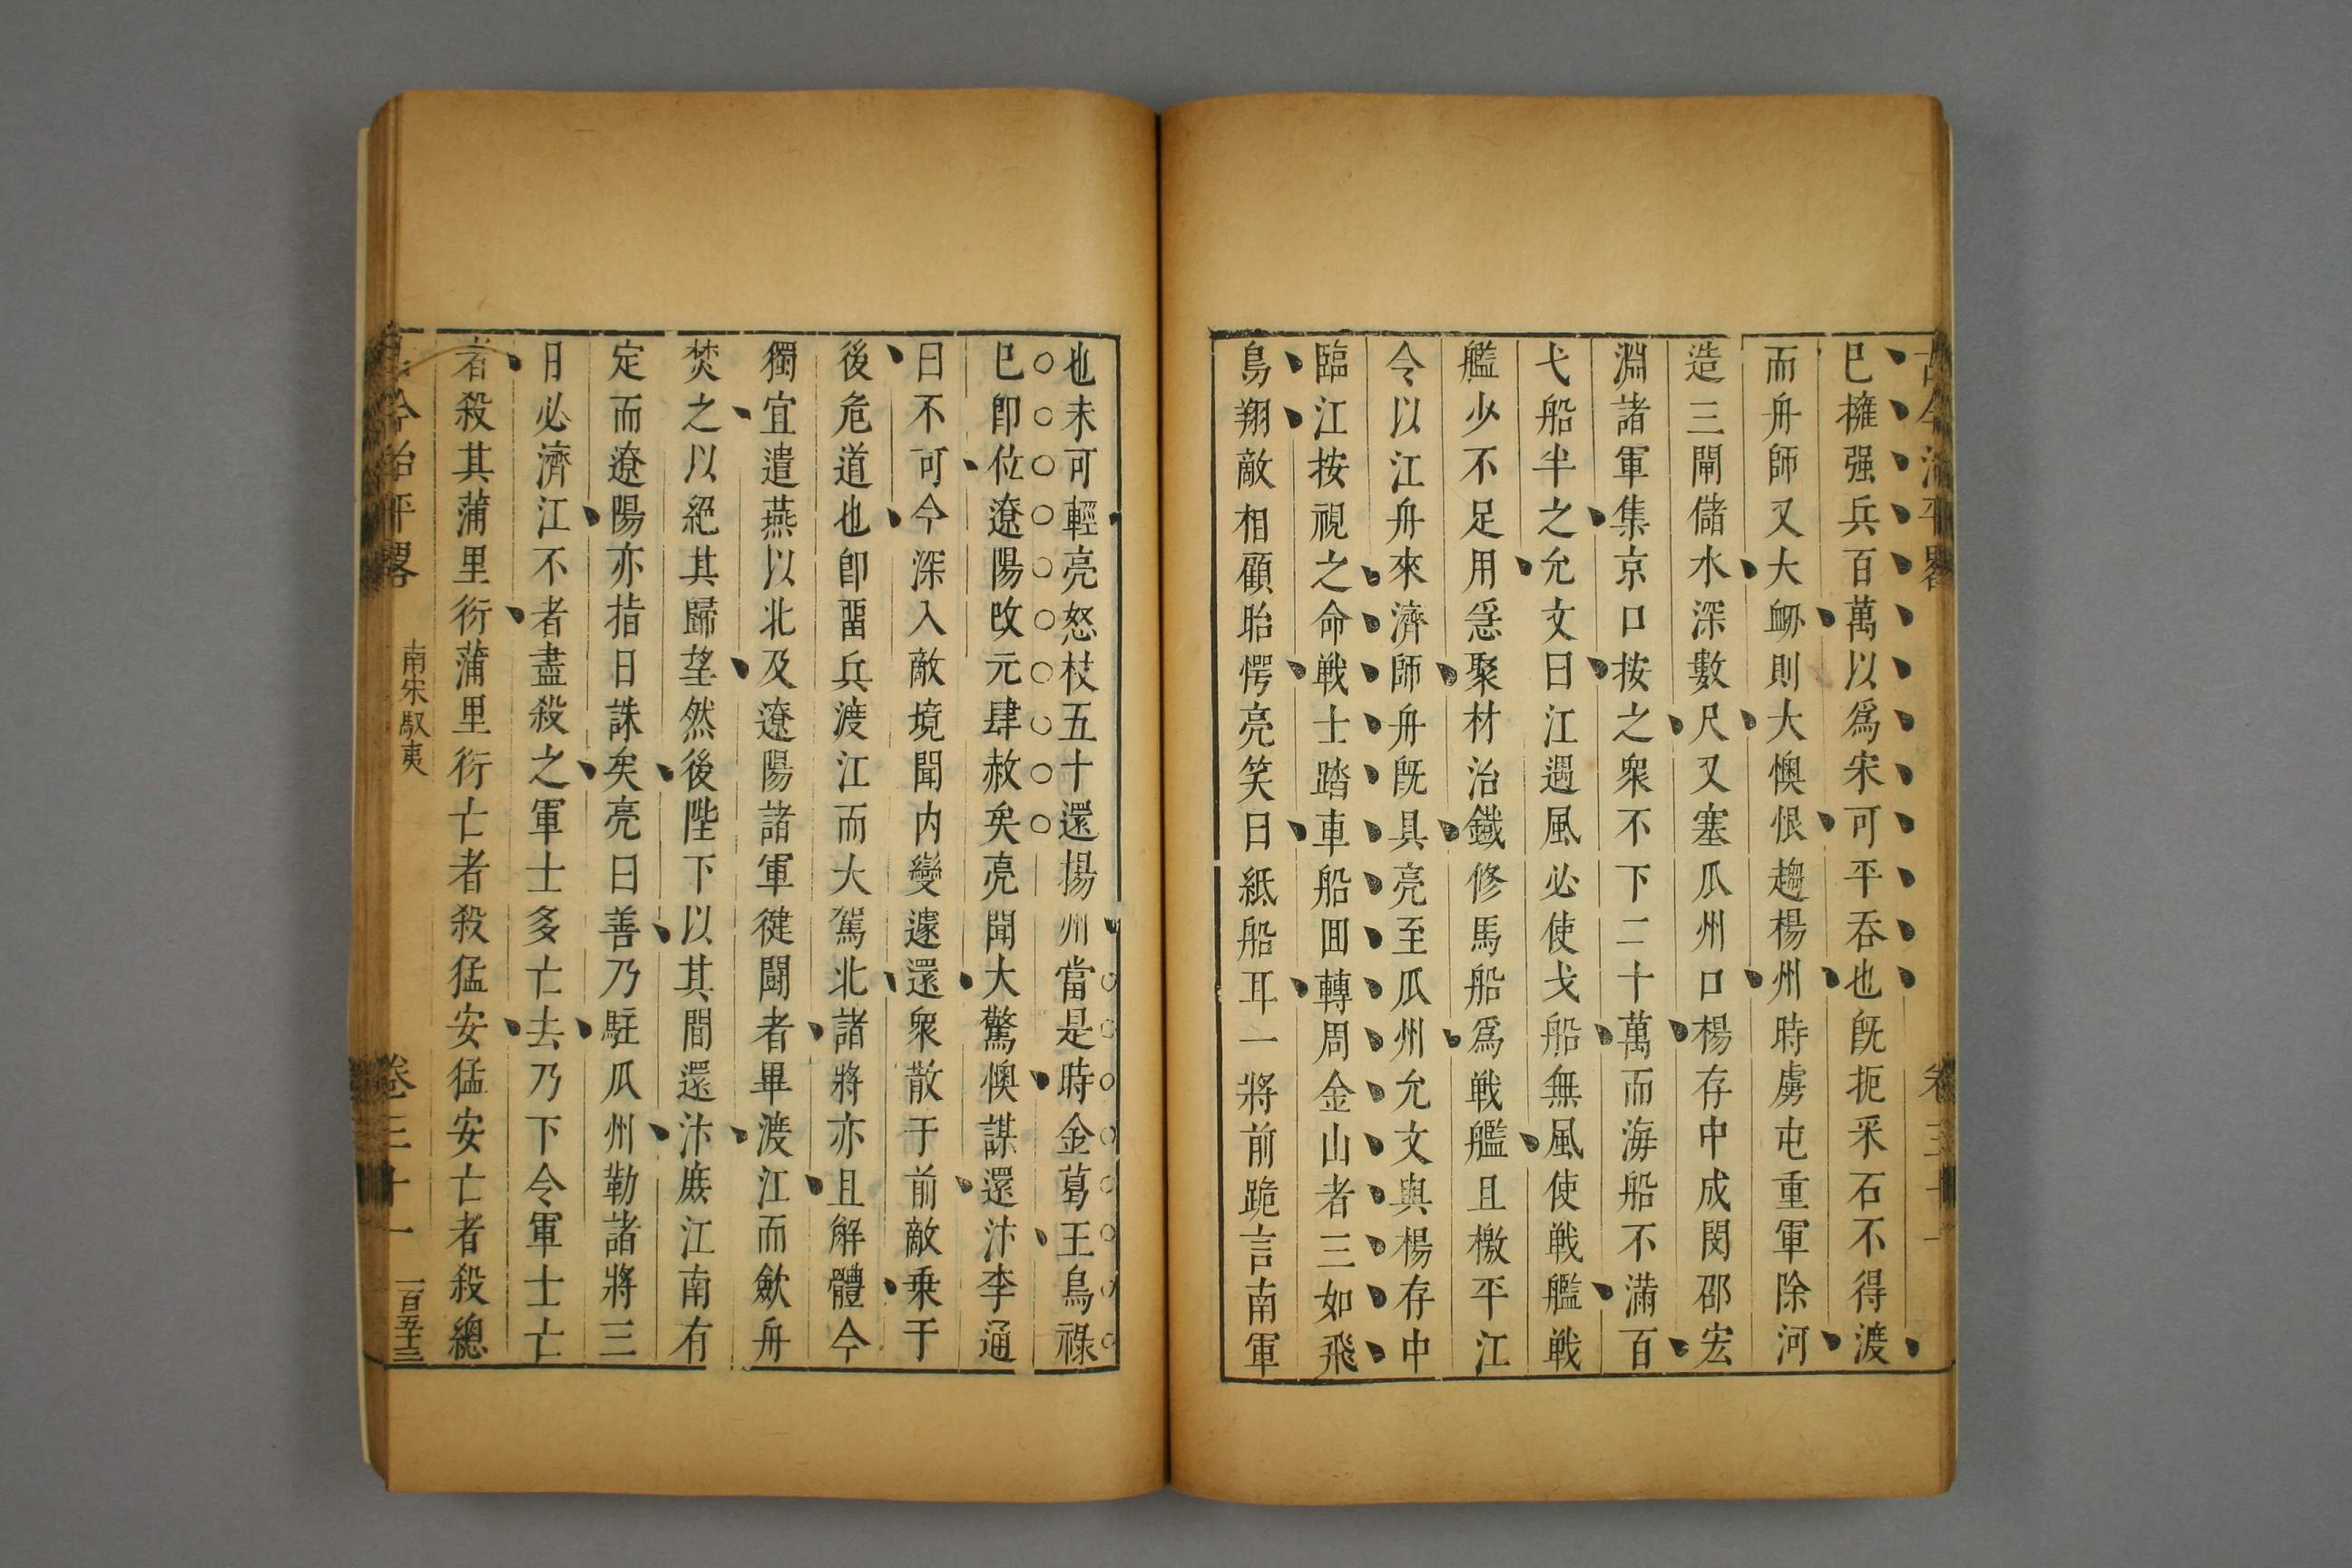 古今治平畧
卷三十一
已擁强兵百萬以爲宋可平吞也旣扼采石不得渡
而舟師又大衂則大懊恨趨楊州時虜屯重軍除河
造三閘儲水深數尺又塞瓜州口楊存中成閔邵宏
淵諸軍集京口按之衆不下二十萬而海船不滿百
弋船半之允文曰江遇風必使戈船無風使戦艦戦
艦少不足用急聚材治鐵修馬船爲戦艦且檄平江
令以江舟來濟師舟旣具亮至瓜州允文與楊存中
臨江按視之命戦士踏車船囬轉周金山者三如飛
鳥翔敵相顧眙愕亮笑曰紙船耳一將前跪言南軍
也未可輕亮怒杖五十還揚州當是時金葛王烏祿
已卽位遼陽改元肆赦矣亮聞大驚懊謀還汴李通
曰不可今深入敵境聞内變遽還衆散于前敵乗于
後危道也卽畱兵渡江而大駕北諸將亦且解體今
獨宜遣燕以北及遼陽諸軍徤鬪者畢渡江而歛舟
焚之以絕其歸望然後陛下以其間還汴庻江南有
定而遼陽亦指日誅矣亮曰善乃駐瓜州勒諸將三
日必濟江不者盡殺之軍士多亡去乃下令軍士亡
者殺其蒲里衍蒲里衍亡者殺猛安猛安亡者殺總
古今治平畧
南宋馭夷
卷三十一
一百五十三